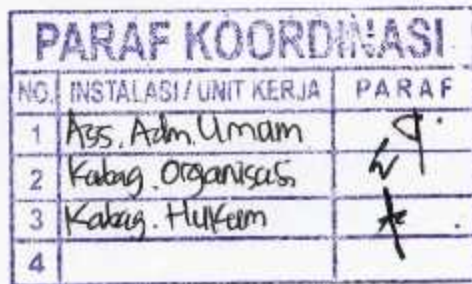 PARAF KOORDINASI
NO. INSTALASI / UNIT KERJA PARAF
1 Ass. Adm. Umam
2 Kabag. Organisasi
3 Kabag. Hukum
4